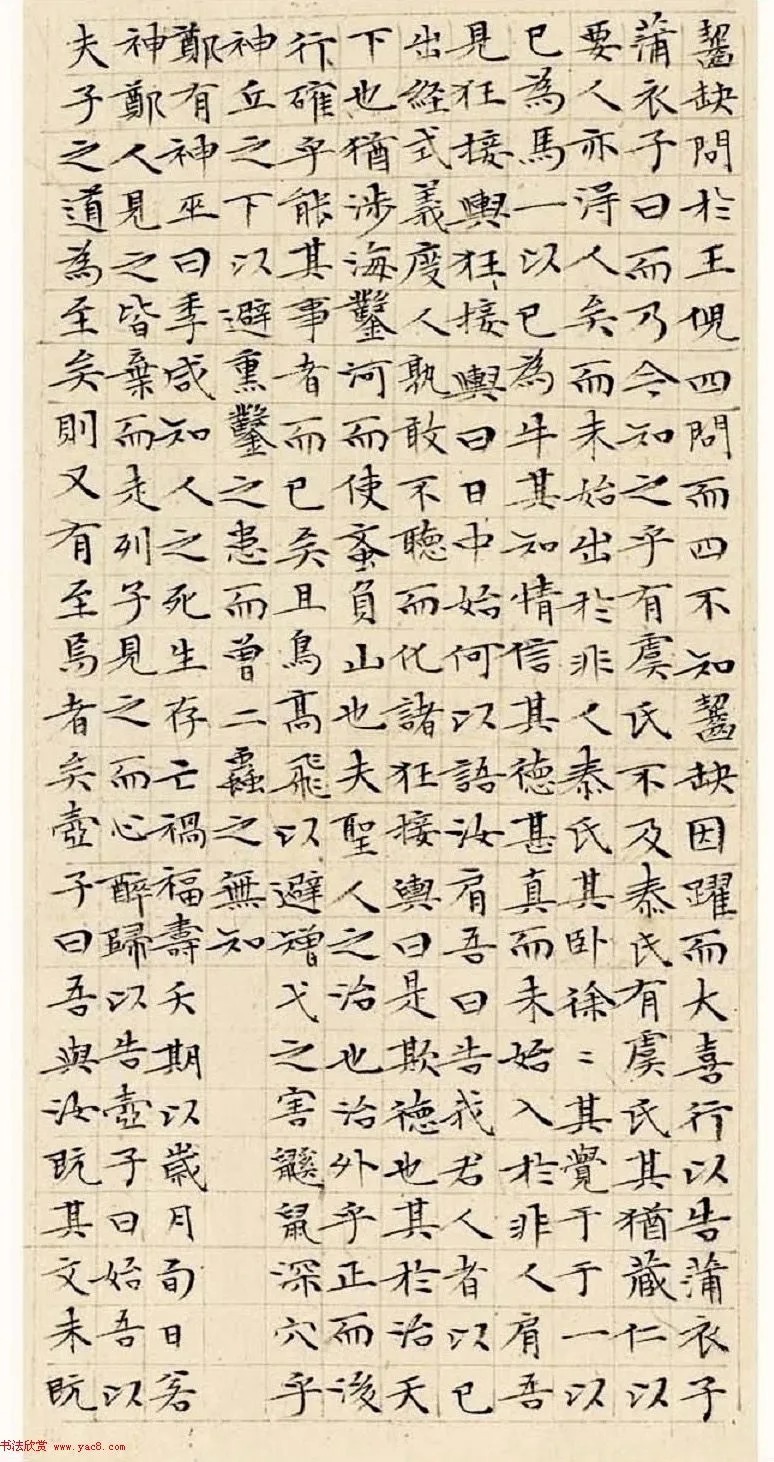 齧缺問於王倪四問而四不知齧缺因躍而大喜行以告蒲衣子
蒲衣子曰而乃今知之乎有虞氏不及泰氏有虞氏其猶藏仁以
要人亦得人矣而未始出於非人泰氏其卧徐〻其覺于于一以
已為馬一以已為牛其知情信其德甚真而未始入於非人肩吾
見狂接輿狂接輿曰日中始何以語汝肩吾曰告我君人者以已
出経式義度人孰敢不聽而化諸狂接輿曰是欺德也其於治天
下也猶涉海鑿河而使蚉負山也夫聖人之治也治外乎正而後
行確乎能其事者而已矣且鳥高飛以避矰弋之害鼷鼠深穴乎
神丘之下以避熏鑿之患而曾二蟲之無知
鄭有神巫曰季咸知人之死生存亡禍福壽夭期以歲月旬日若
神鄭人見之皆棄而走列子見之而心醉歸以告壺子曰始吾以
夫子之道為至矣則又有至焉者矣壺子曰吾與汝既其文未既
书法欣赏 www.yac8.com